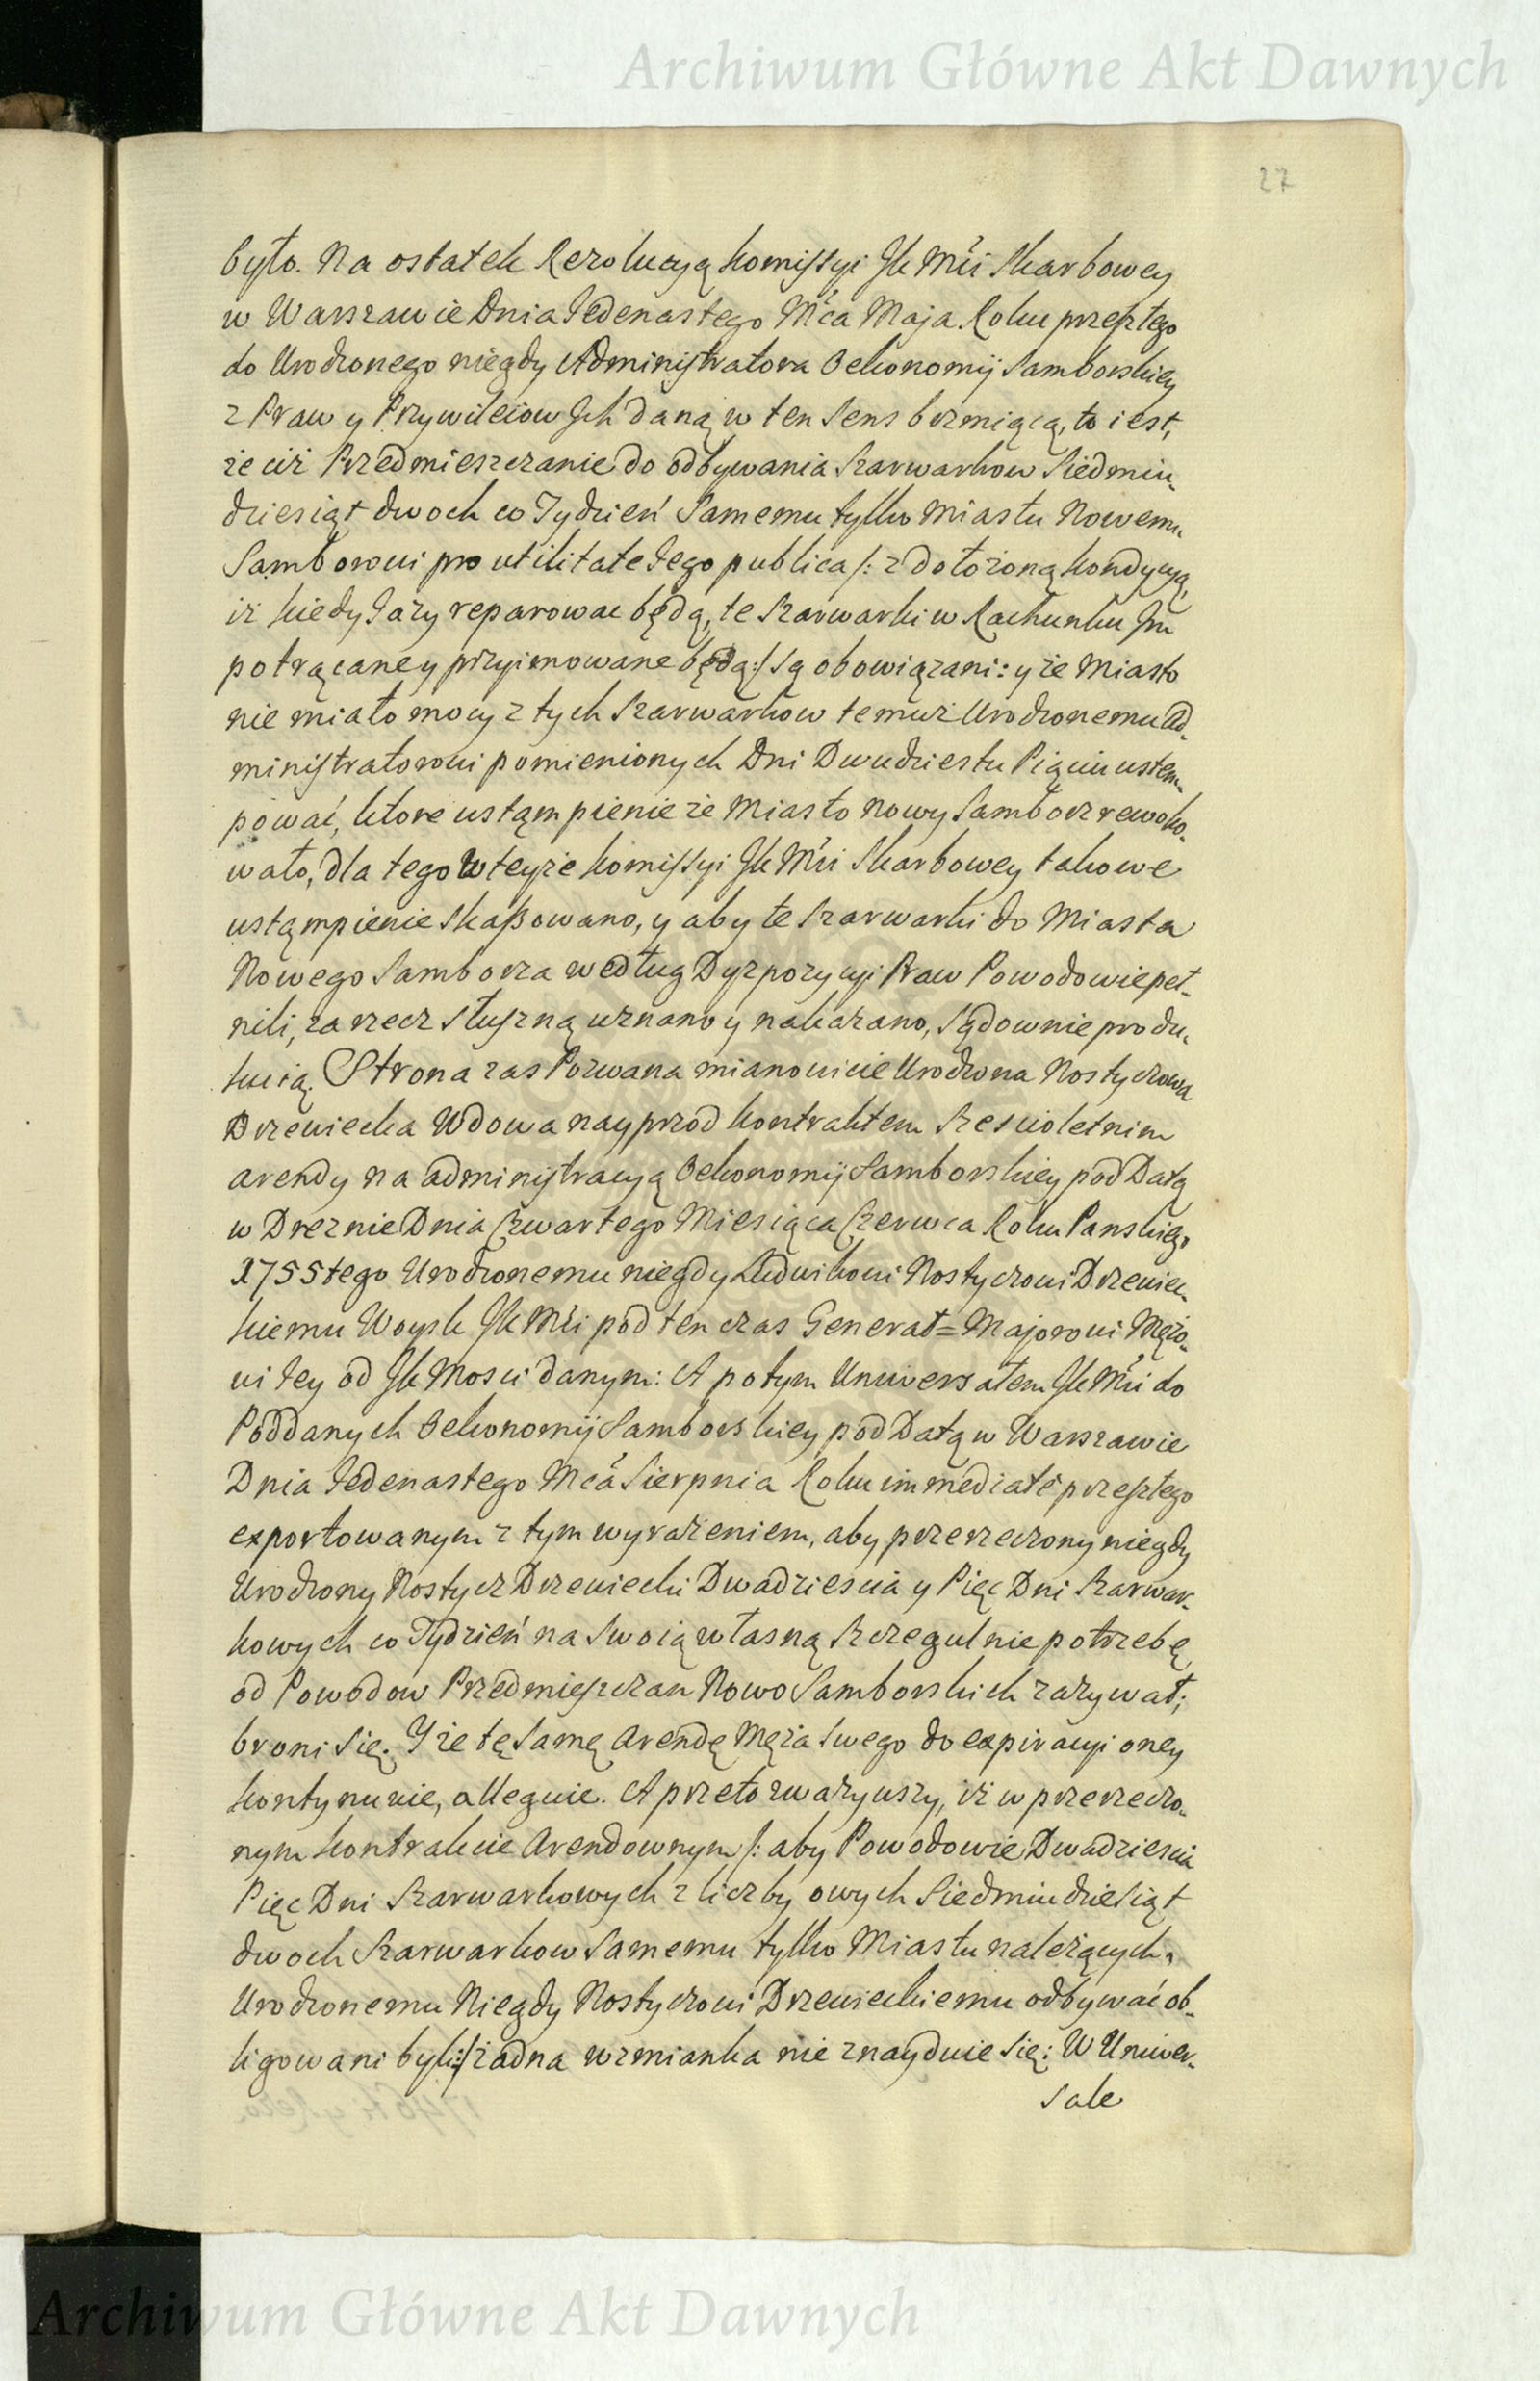 Archiwum Główne Akt Dawnych
27
było. Na ostatek Rezolucyą Komissyi JkMći Skarbowey
w Warszawie Dnia Jedenastego Mća Maja Roku przeszłego
do Urodzonego niegdy Administratora Oekonomij Samborskiey
z Praw y Przywileiow Jch daną w ten Sens brzmiącą, to iest,
że ciż Przedmieszczanie do odbywania Szarwarkow Siedmiu-
dziesiąt dwoch co Tydzień Samemu tylko Miastu Nowemu
Samborowi pro utilitate Jego publica /: z dołożoną kondycyą,
iż kiedy Jazy reparowac będą, te Szarwarki w Rachunku Jm
potrącane y przyimowane będą:/ Są obowiązani: y że Miasto
nie miało mocy z tych Szarwarkow temuż Urodzonemu Ad-
ministratorowi pomienionych Dni Dwudziestu Pięciu ustem-
pować, ktore ustąmpienie że Miasto Nowy Samborz rewoko-
wało, dla tego w teyże Komissyi JkMći Skarbowey takowe
ustąmpienie Skaßowano, y aby te Szarwarki do Miasta
Nowego Samborza według Dyzpozycyi Praw Powodowie peł-
nili, za rzecz Słuszną uznano y nakazano, Sądownie produ-
kuią. Strona zas Pozwana mianowicie Urodzona Nostyczowa
Drzewiecka Wdowa nayprzod Kontraktem Szescioletnim
arendy na administracyą Oekonomij Samborskiey pod Datą
w Dreznie Dnia Czwartego Miesiąca Czerwca Roku Panskiego
1755tego Urodzonemu niegdy Ludwikowi Nostyczowi Drzewiec-
kiemu Woysk JkMći pod ten czas Generał=Majorowi Mężo-
wi Jey od Jk Mosci danym: A potym Uniwersałem JkMći do
Poddanych Oekonomij Samborskiey pod Datą w Warszawie
Dnia Jedenastego Mća Sierpnia Roku immediate przeszłego
exportowanym z tym wyrażeniem, aby przerzeczony niegdy
Urodzony Nostycz Drzewiecki Dwadziescia y Pięc Dni Szarwar-
kowych co Tydzień na Swoią własną Szczegulnie potrzebę
od Powodow Przedmieszczan Nowo Samborskich zażywał;
broni Się. Y że tę Samę Arendę Męża Swego do expiracyi oney
kontynuuie, alleguie. A przeto zważywszy, iż w przerzeczo-
nym kontrakcie Arendownym /: aby Powodowie Dwadziescia
Pięc Dni Szarwarkowych z liczby owych Siedmiudziesiąt
dwoch Szarwarkow Samemu tylko Miastu należących,
Urodzonemu Niegdy Nostyczowi Drzewieckiemu odbywać ob-
ligowani byli:/ żadna wzmianka nie znayduie Się: W Uniwer-
Sale
Archiwum Główne Akt Dawnych